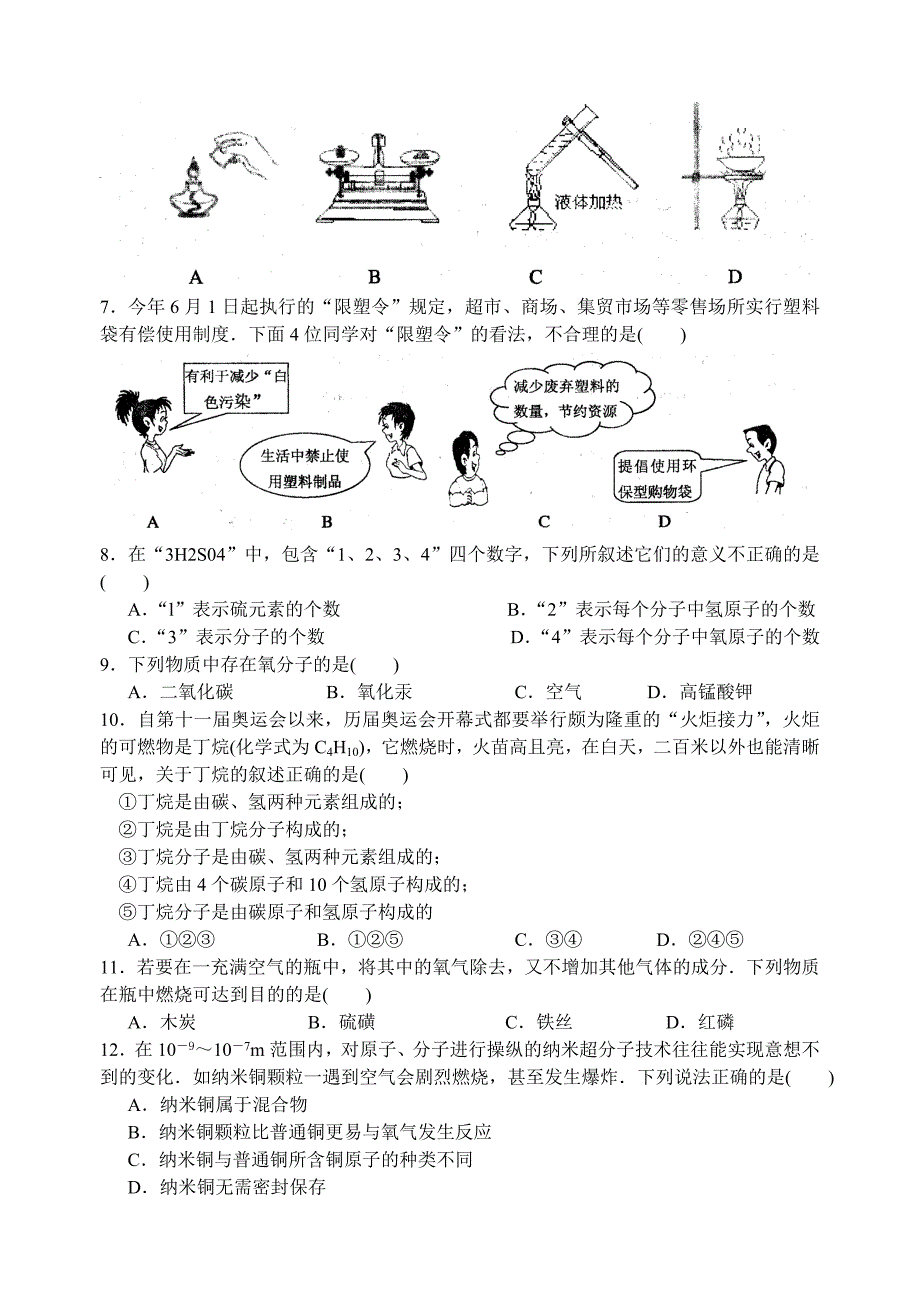 液体加热
A B C D
7．今年 6 月 1 日起执行的“限塑令”规定，超市、商场、集贸市场等零售场所实行塑料
袋有偿使用制度．下面 4 位同学对“限塑令”的看法，不合理的是( )
有利于减少“白
色污染”
生活中禁止使
用塑料制品
减少废弃塑料的
数量，节约资源
提倡使用环
保型购物袋
A B C D
8．在“3H2S04”中，包含“1、2、3、4”四个数字，下列所叙述它们的意义不正确的是
( )
A．“l”表示硫元素的个数 B．“2”表示每个分子中氢原子的个数
C．“3”表示分子的个数 D．“4”表示每个分子中氧原子的个数
9．下列物质中存在氧分子的是( )
A．二氧化碳 B．氧化汞 C．空气 D．高锰酸钾
10．自第十一届奥运会以来，历届奥运会开幕式都要举行颇为隆重的“火炬接力”，火炬
的可燃物是丁烷(化学式为 C₄H₁₀)，它燃烧时，火苗高且亮，在白天，二百米以外也能清晰
可见，关于丁烷的叙述正确的是( )
①丁烷是由碳、氢两种元素组成的；
②丁烷是由丁烷分子构成的；
③丁烷分子是由碳、氢两种元素组成的；
④丁烷由 4 个碳原子和 10 个氢原子构成的；
⑤丁烷分子是由碳原子和氢原子构成的
A．①②③ B．①②⑤ C．③④ D．②④⑤
11．若要在一充满空气的瓶中，将其中的氧气除去，又不增加其他气体的成分．下列物质
在瓶中燃烧可达到目的的是( )
A．木炭 B．硫磺 C．铁丝 D．红磷
12．在 10⁻⁹～10⁻⁷m 范围内，对原子、分子进行操纵的纳米超分子技术往往能实现意想不
到的变化．如纳米铜颗粒一遇到空气会剧烈燃烧，甚至发生爆炸．下列说法正确的是( )
A．纳米铜属于混合物
B．纳米铜颗粒比普通铜更易与氧气发生反应
C．纳米铜与普通铜所含铜原子的种类不同
D．纳米铜无需密封保存